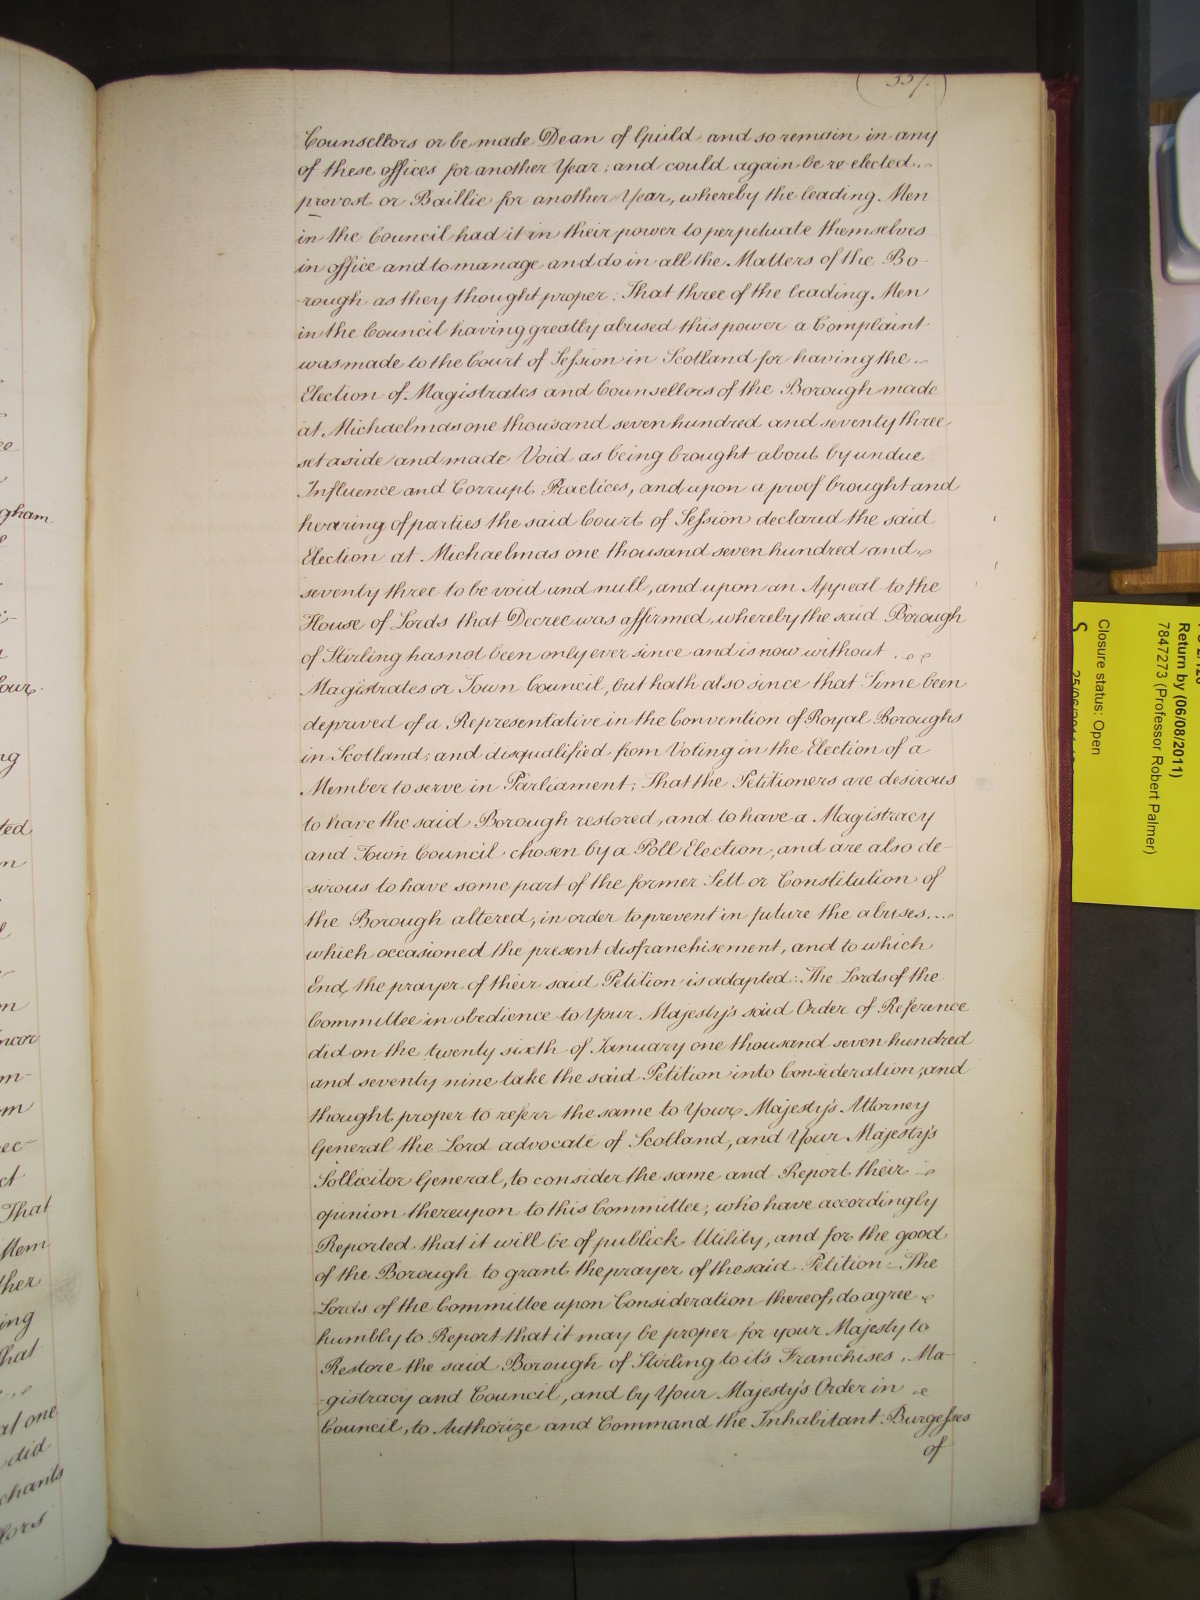 337.
Counsellors or be made Dean of Guild and so remain in any
of these offices for another Year; and could again be re elected
provost or Baillie for another Year, whereby the leading Men
in the Council had it in their power to perpetuate themselves
in office and to manage and do in all the Matters of the Bo-
-rough as they thought proper: That three of the leading Men
in the Council having greatly abused this power a Complaint
was made to the Court of Session in Scotland for having the
Election of Magistrates and Counsellors of the Borough made
at Michaelmas one thousand seven hundred and seventy three
set aside and made Void as being brought about by undue
Influence and Corrupt Practices, and upon a proof brought and
hearing of parties the said Court of Session declared the said
Election at Michaelmas one thousand seven hundred and
seventy three to be void and null, and upon an Appeal to the
House of Lords that Decree was affirmed, whereby the said Borough
of Stirling has not been only ever since and is now without
Magistrates or Town Council, but hath also since that Time been
deprived of a Representative in the Convention of Royal Boroughs
in Scotland; and disqualified from Voting in the Election of a
Member to serve in Parliament; That the Petitioners are desirous
to have the said Borough restored, and to have a Magistracy
and Town Council chosen by a Poll Election, and are also de-
sirous to have some part of the former Sett or Constitution of
the Borough altered, in order to prevent in future the abuses
which occasioned the present disfranchisement, and to which
End, the prayer of their said Petition is adapted: The Lords of the
Committee in obedience to Your Majesty's said Order of Reference
did on the twenty sixth of January one thousand seven hundred
and seventy nine take the said Petition into Consideration, and
thought proper to referr the same to Your Majesty's Attorney
General the Lord advocate of Scotland, and Your Majesty's
Sollicitor General, to consider the same and Report their
opinion thereupon to this Committee, who have accordingly
Reported that it will be of publick Utility, and for the good
of the Borough to grant the prayer of the said Petition - The
Lords of the Committee upon Consideration thereof, do agree
humbly to Report that it may be proper for your Majesty to
Restore the said Borough of Stirling to it's Franchises, Ma-
-gistracy and Council, and by Your Majesty's Order in
Council, to Authorize and Command the Inhabitant Burgesses
of
gham
ng
ted
ncor
That
Mem
ther
ing
that
at one
did
chants
llors
Return by (06/08/2011)
7847273 (Professor Robert Palmer)
Closure status: Open
S